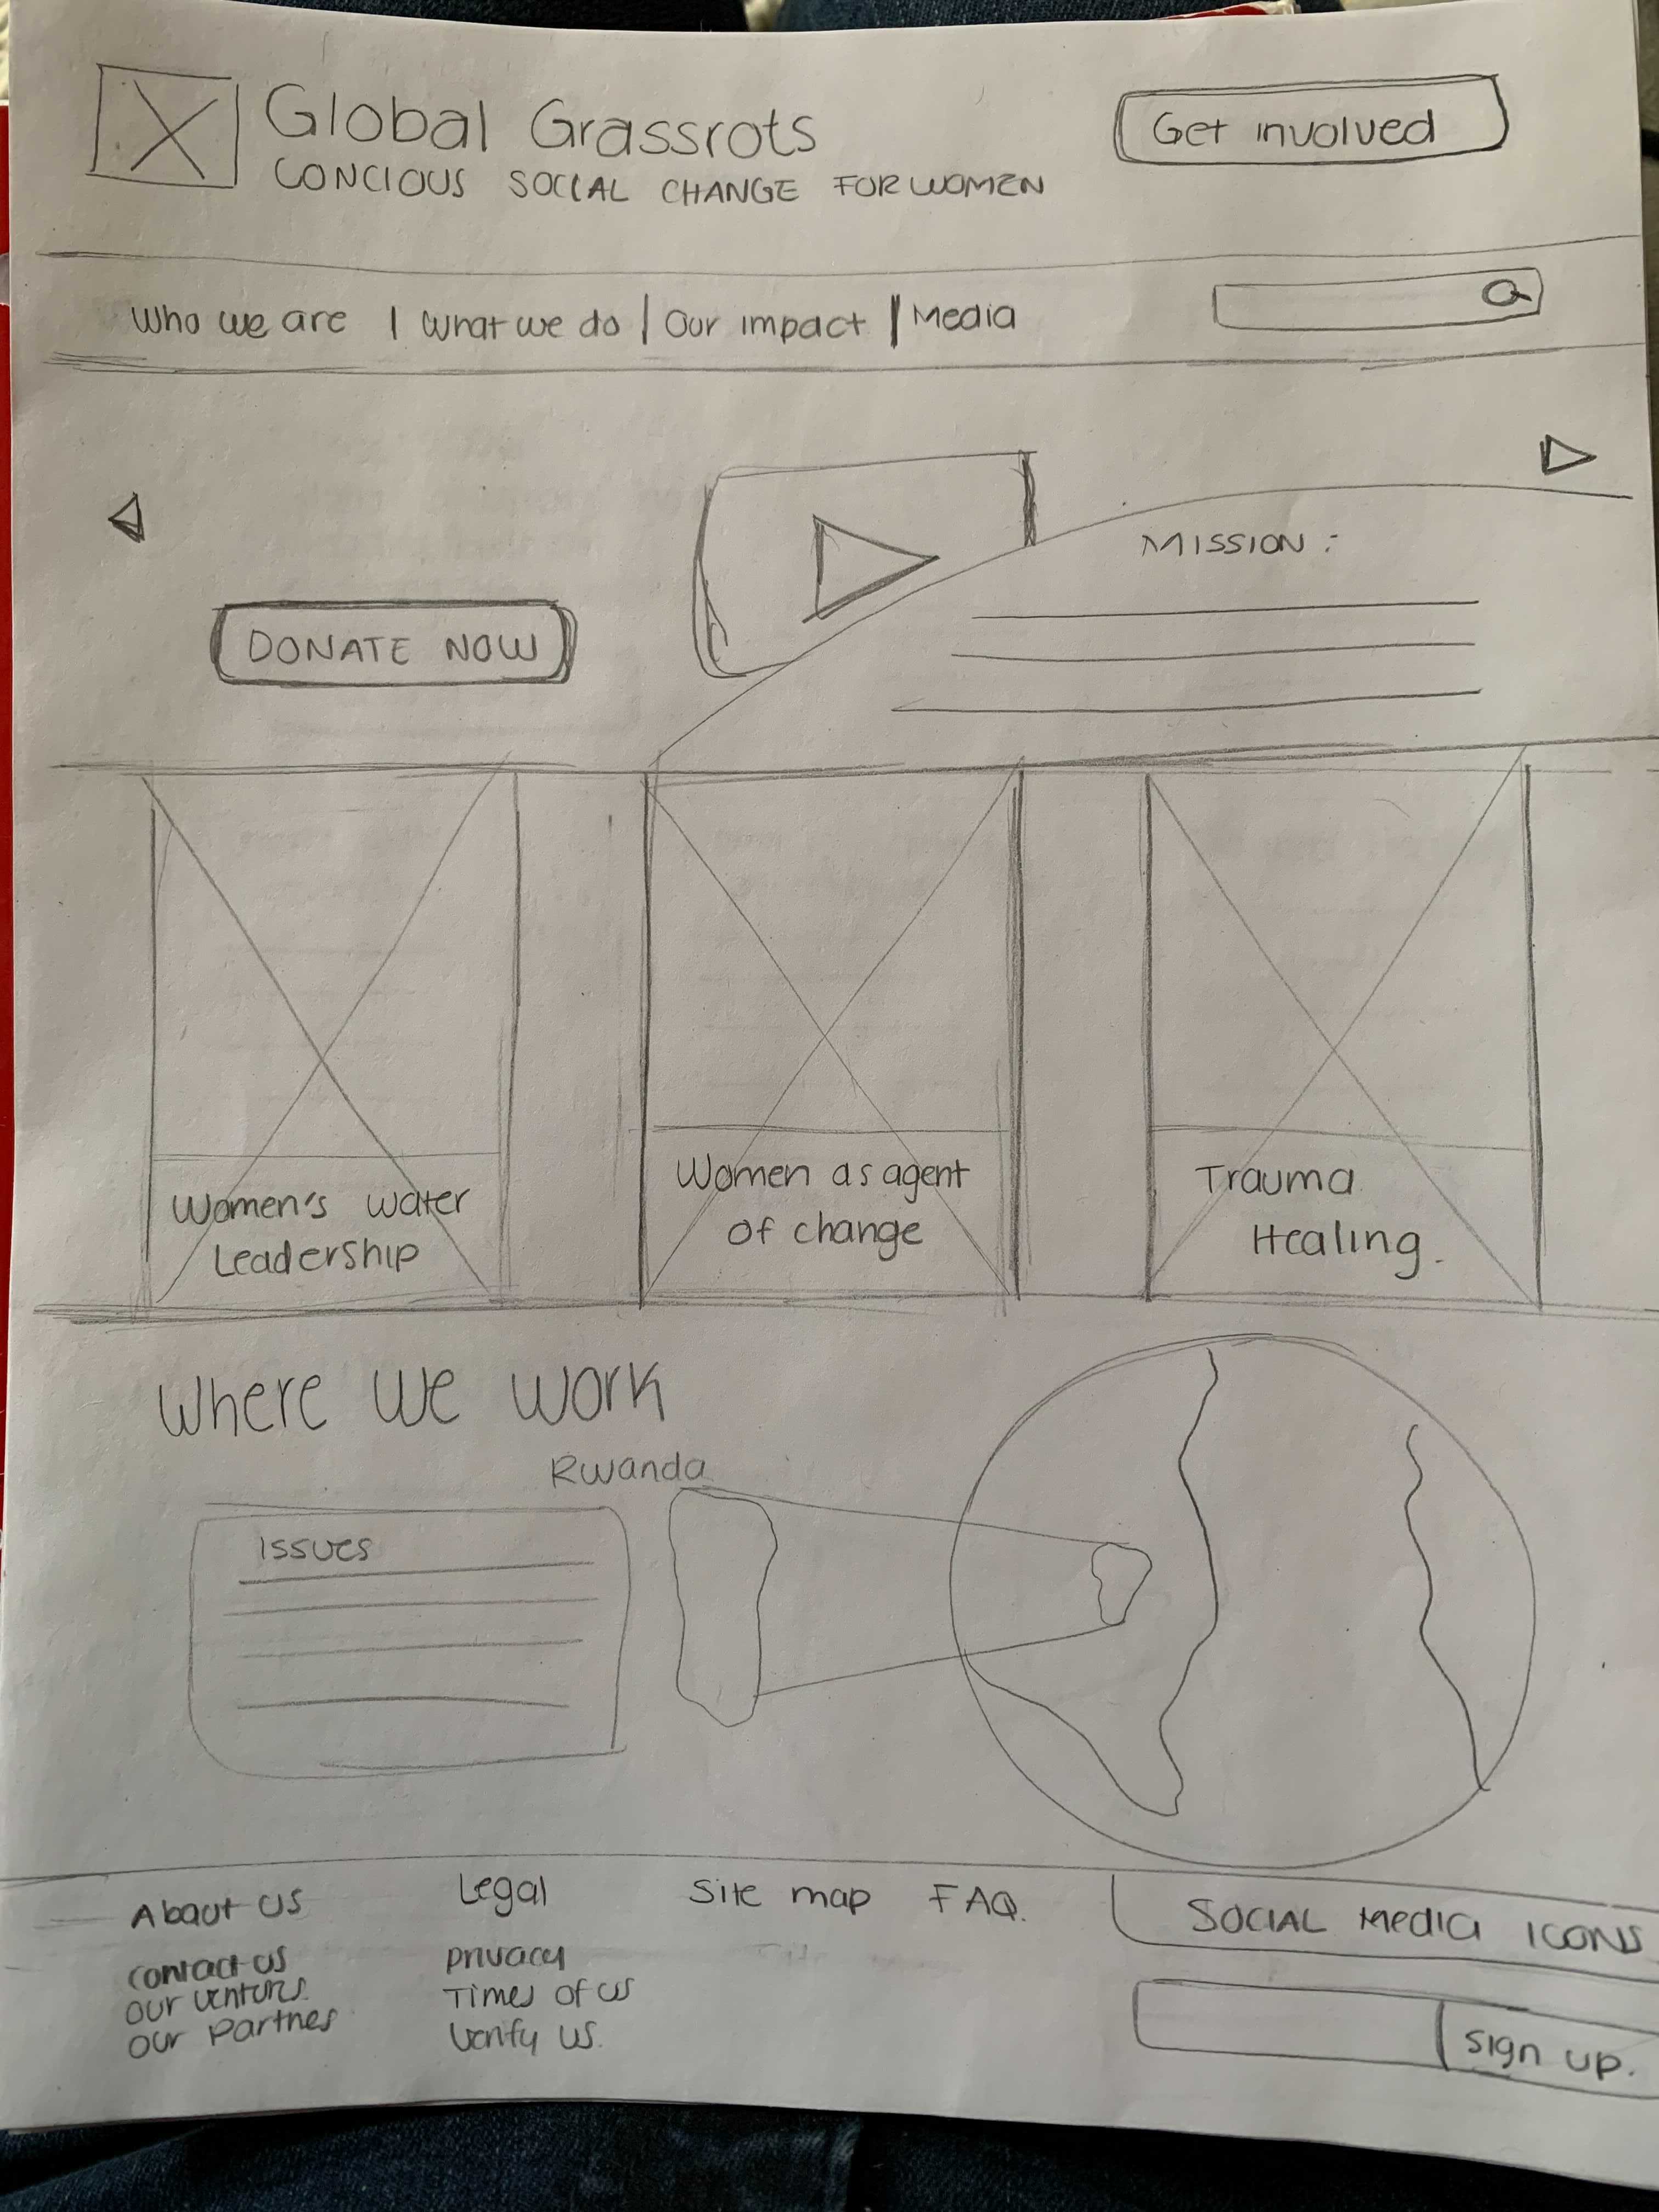 Global Grassrots
CONCIOUS SOCIAL CHANGE FOR WOMEN
Get involved
Who we are | What we do | Our impact | Media
MISSION:
DONATE NOW
Women's water
Leadership
Women as agent
of change
Trauma
Healing.
Where we work
Rwanda
Issues
About us
contact us
our
our Partnes
Legal
privacy
Times of us
Verify us.
Site map
FAQ.
SOCIAL MEDIA ICONS
sign up.